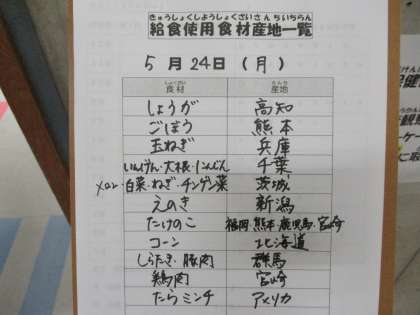 きゅうしょくしようしょくざいさんちいちらん
給食使用食材産地一覧
5月24日(月)
しょくざい さんち
食材 産地
しょうが 高知
ごぼう 熊本
玉ねぎ 兵庫
いんげん・大根・にんじん 千葉
メロン・白菜・ねぎ・チンゲン菜 茨城
えのき 新潟
たけのこ 福岡・熊本・鹿児島・宮崎
コーン 北海道
しらたき・豚肉 群馬
鶏肉 宮崎
たらミンチ アメリカ